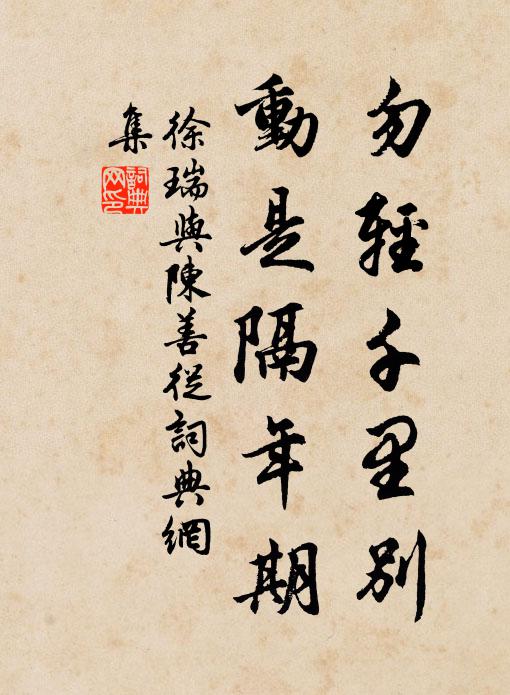 勿輕千里別
動是隔年期
徐瑞與陳善從詞典網
集
詞典
网印